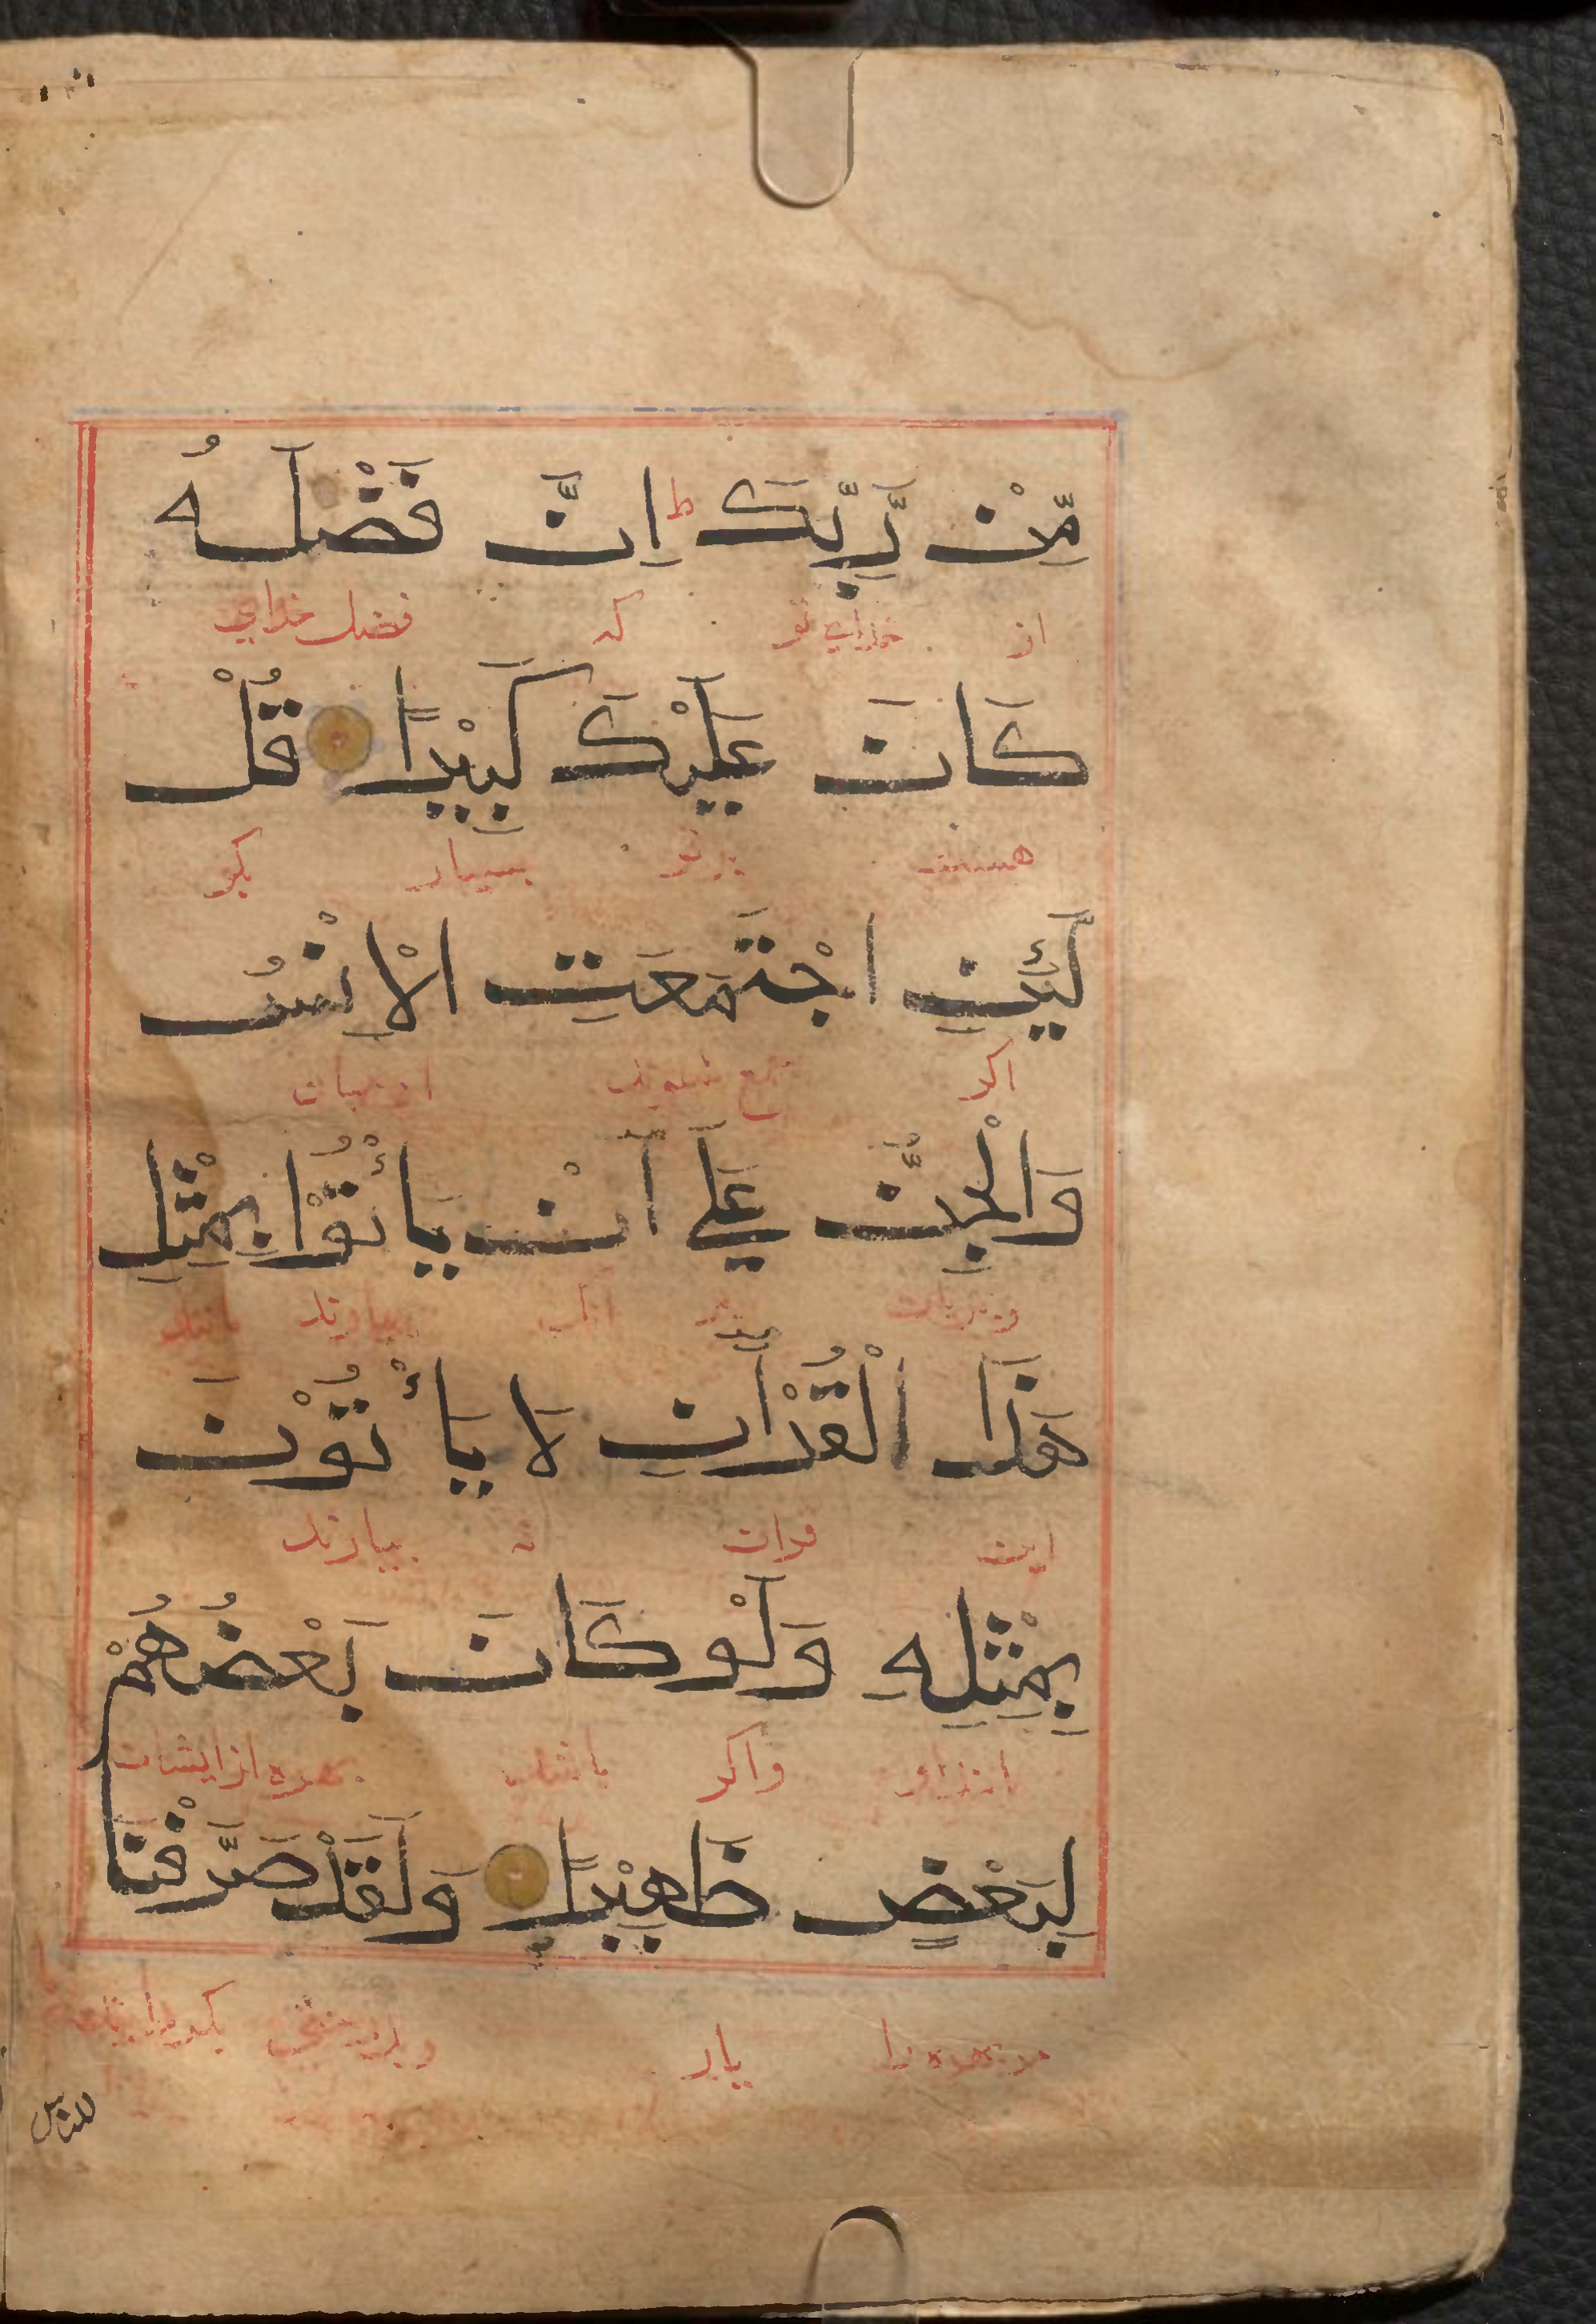 مِّنْ رَّبِّكَ ط اِنَّ فَضْلَهُ
از خدای تو که فضل خدای
كَانَ عَلَيْكَ كَبِيْرًا قُلْ
هست بر تو بسیار بکو
لَّئِنِ اجْتَمَعَتِ الْاِنْسُ
اکر جمع شوند ادمیان
وَالْجِنُّ عَلٰي اَنْ يَاْتُوْا بِمِثْلِ
و پریان بر انک بیارند مانند
هَذَا الْقُرْاٰنِ لَا يَاْتُوْنَ
این قران نه بیارند
بِمِثْلِهِ وَلَوْ كَانَ بَعْضُهُمْ
مانند او واکر باشد بهره از ایشان
لِبَعْضٍ ظَهِيْرًا وَلَقَدْ صَرَّفْنَا
مر بهره را یار
للناس